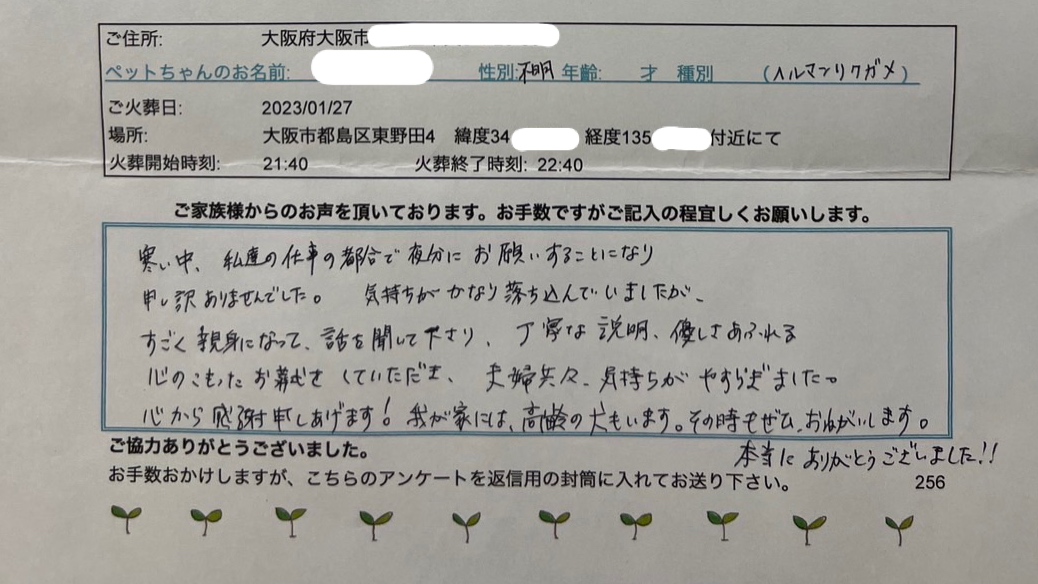 ご住所: 大阪府大阪市
ペットちゃんのお名前: 性別:不明 年齢: 才 種別 (ヘルマンリクガメ)
ご火葬日: 2023/01/27
場所: 大阪市都島区東野田4 緯度34 経度135 付近にて
火葬開始時刻: 21:40 火葬終了時刻: 22:40
ご家族様からのお声を頂いております。お手数ですがご記入の程宜しくお願いします。
寒い中、私達の仕事の都合で夜分にお願いすることになり
申し訳ありませんでした。 気持ちがかなり落ち込んでいましたが、
すごく親身になって、話を聞いて下さり、丁寧な説明、優しさあふれる
心のこもったお葬式をしていただき、夫婦共々、気持ちがやすらぎました。
心から感謝申しあげます! 我が家には、高齢の犬もいます。その時もぜひ、おねがいします。
本当にありがとうございました!!
ご協力ありがとうございました。
お手数おかけしますが、こちらのアンケートを返信用の封筒に入れてお送り下さい。 256